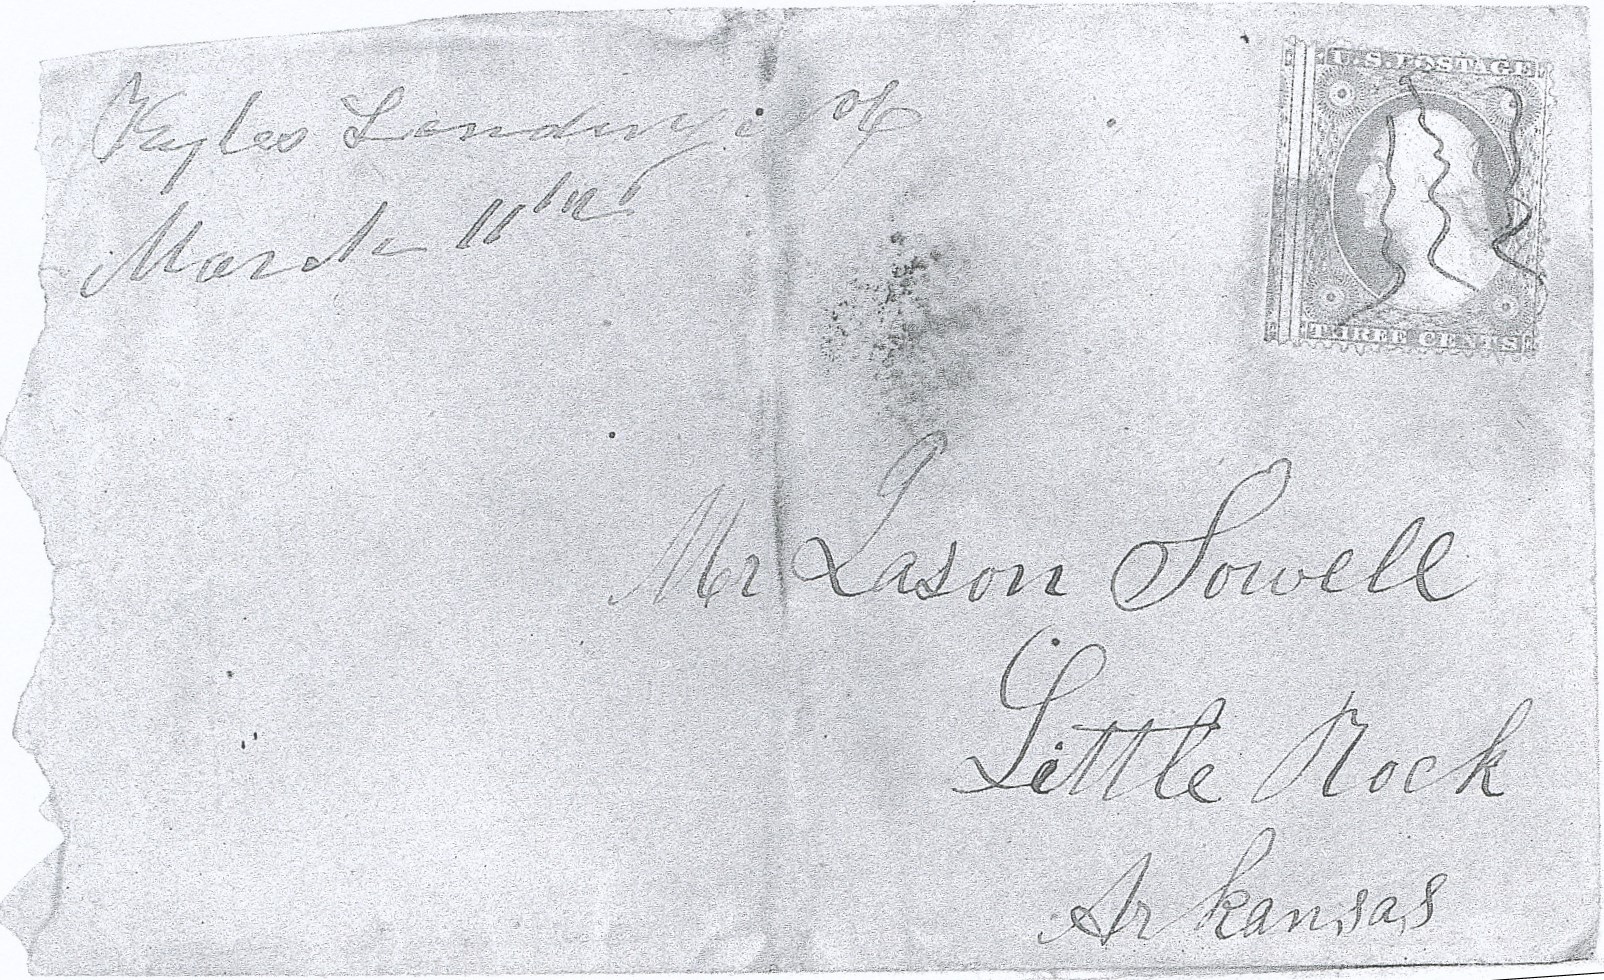 Kyles Landing
March 11th
U.S. POSTAGE
THREE CENTS
Mr Lason Sowell
Little Rock
Arkansas